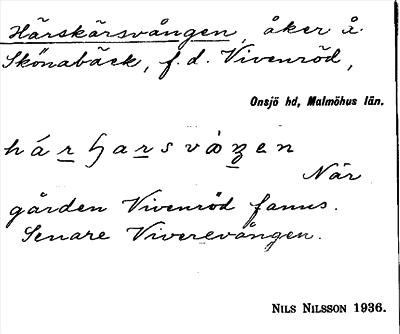 Härskärsvången, åker å
Skönabäck, f. d. Vivenröd,
Onsjö hd, Malmöhus län.
När
gården Vivenröd fanns.
Senare Viverevången.
NILS NILSSON 1936.